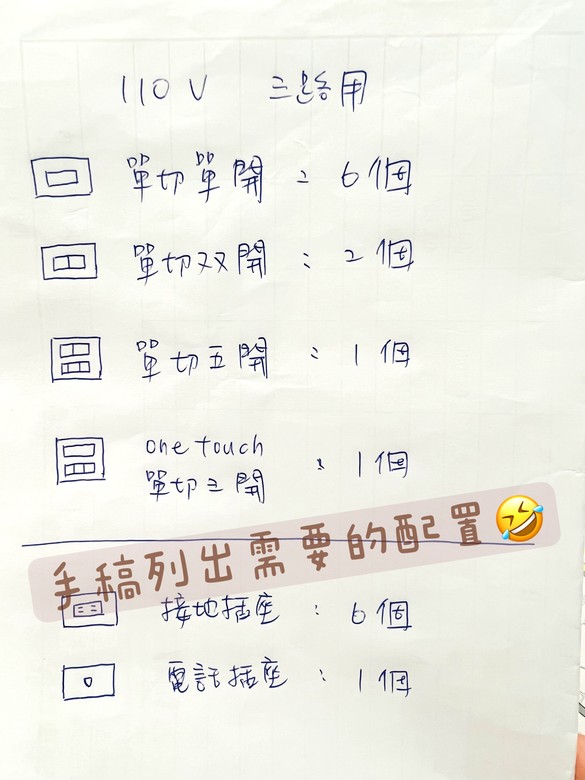 110V 三路用
單切單開：6個
單切双開：2個
單切五開：1個
one touch
單切三開：1個
手稿列出需要的配置🤣
接地插座：6個
電話插座：1個